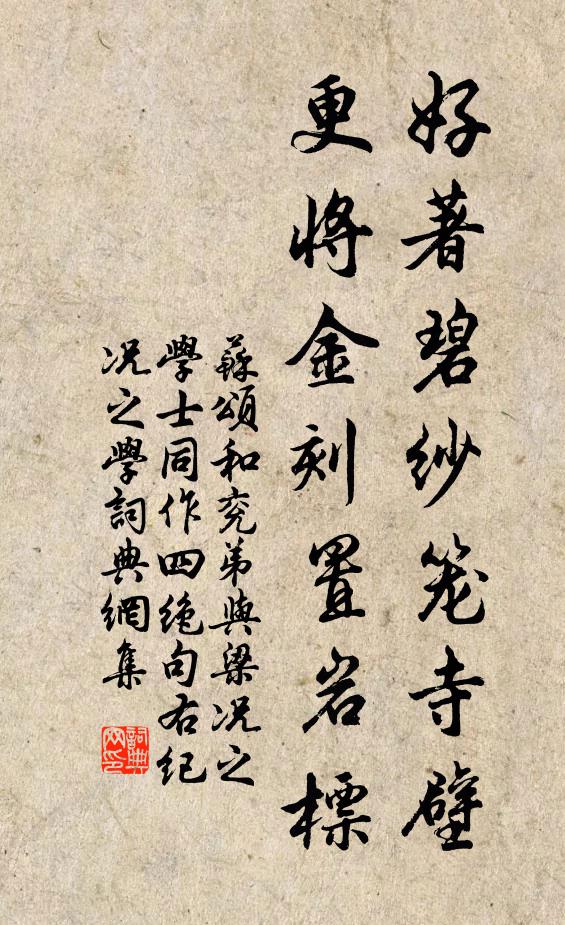 好著碧纱笼寺壁
更将金刻置岩標
蘇頌和兖弟與梁况之
學士同作四绝句右纪
况之學詞典網集
詞典網印